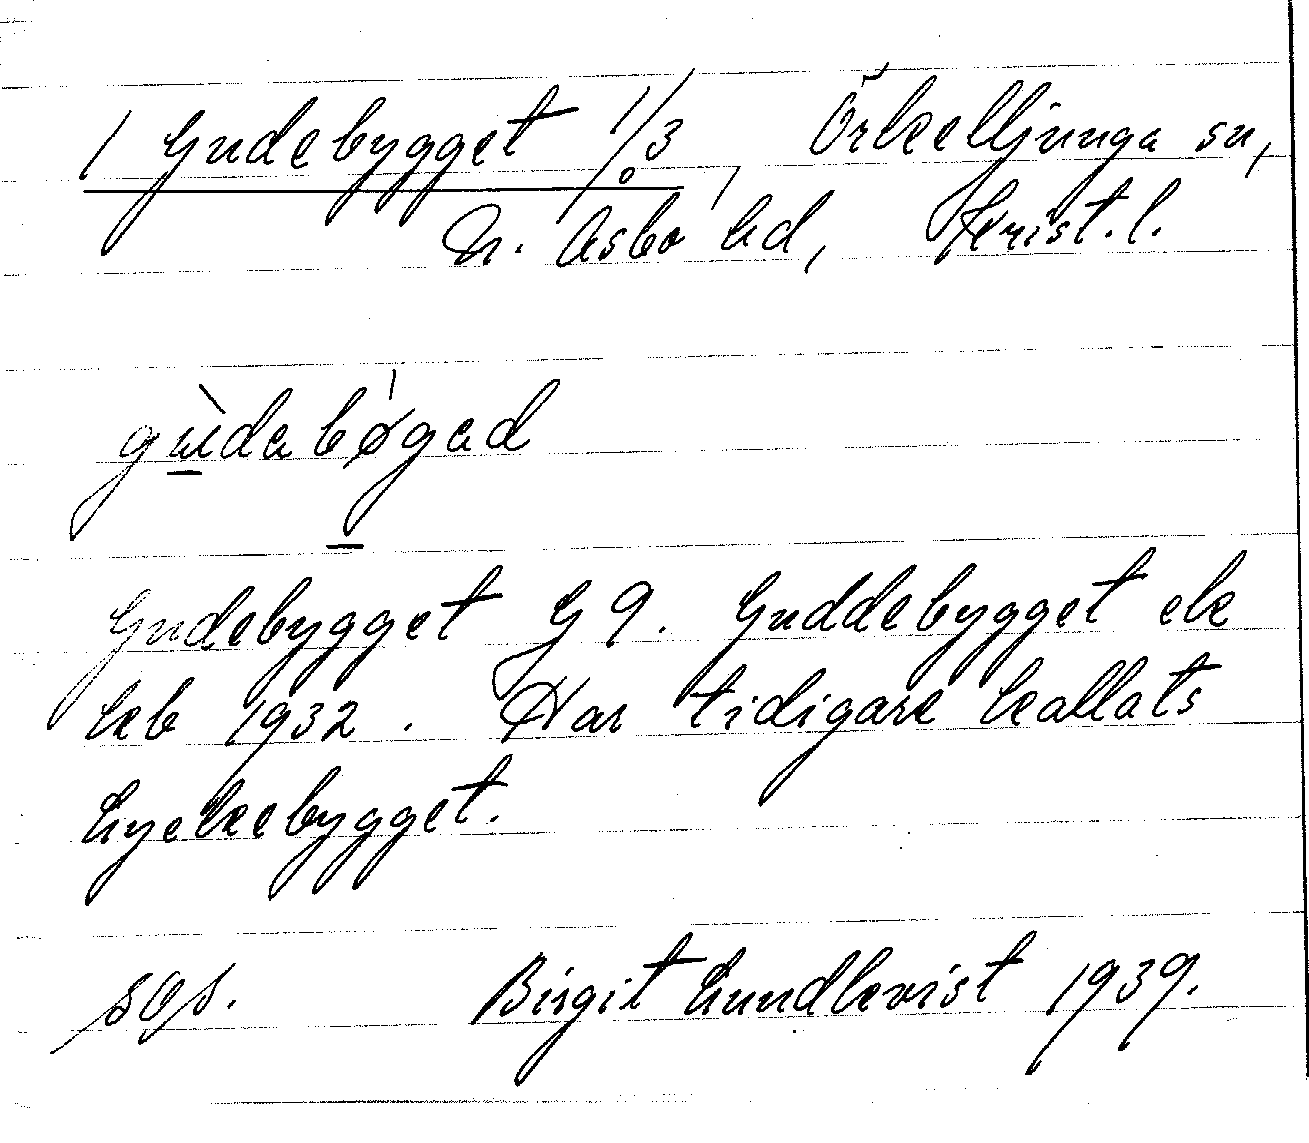 1 Gudebygget 1/3, Örkelljunga sn,
N. Åsbo hd, Krist. l.
gùdabø̀gad
Gudebygget G 9. Guddebygget ek
kb 1932. Har tidigare kallats
Lyckebygget.
sgs. Birgit Lundkvist 1939.